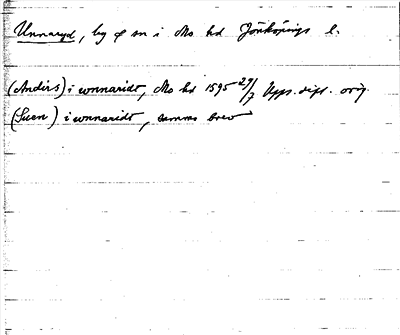 Unnaryd, by o sn i Mo hd Jönköpings l.
(Anders) i wnnaridt, Mo hd 1595 29/7 Upps. dipl. orig.
(Suen) i wnnaridt, samma brev